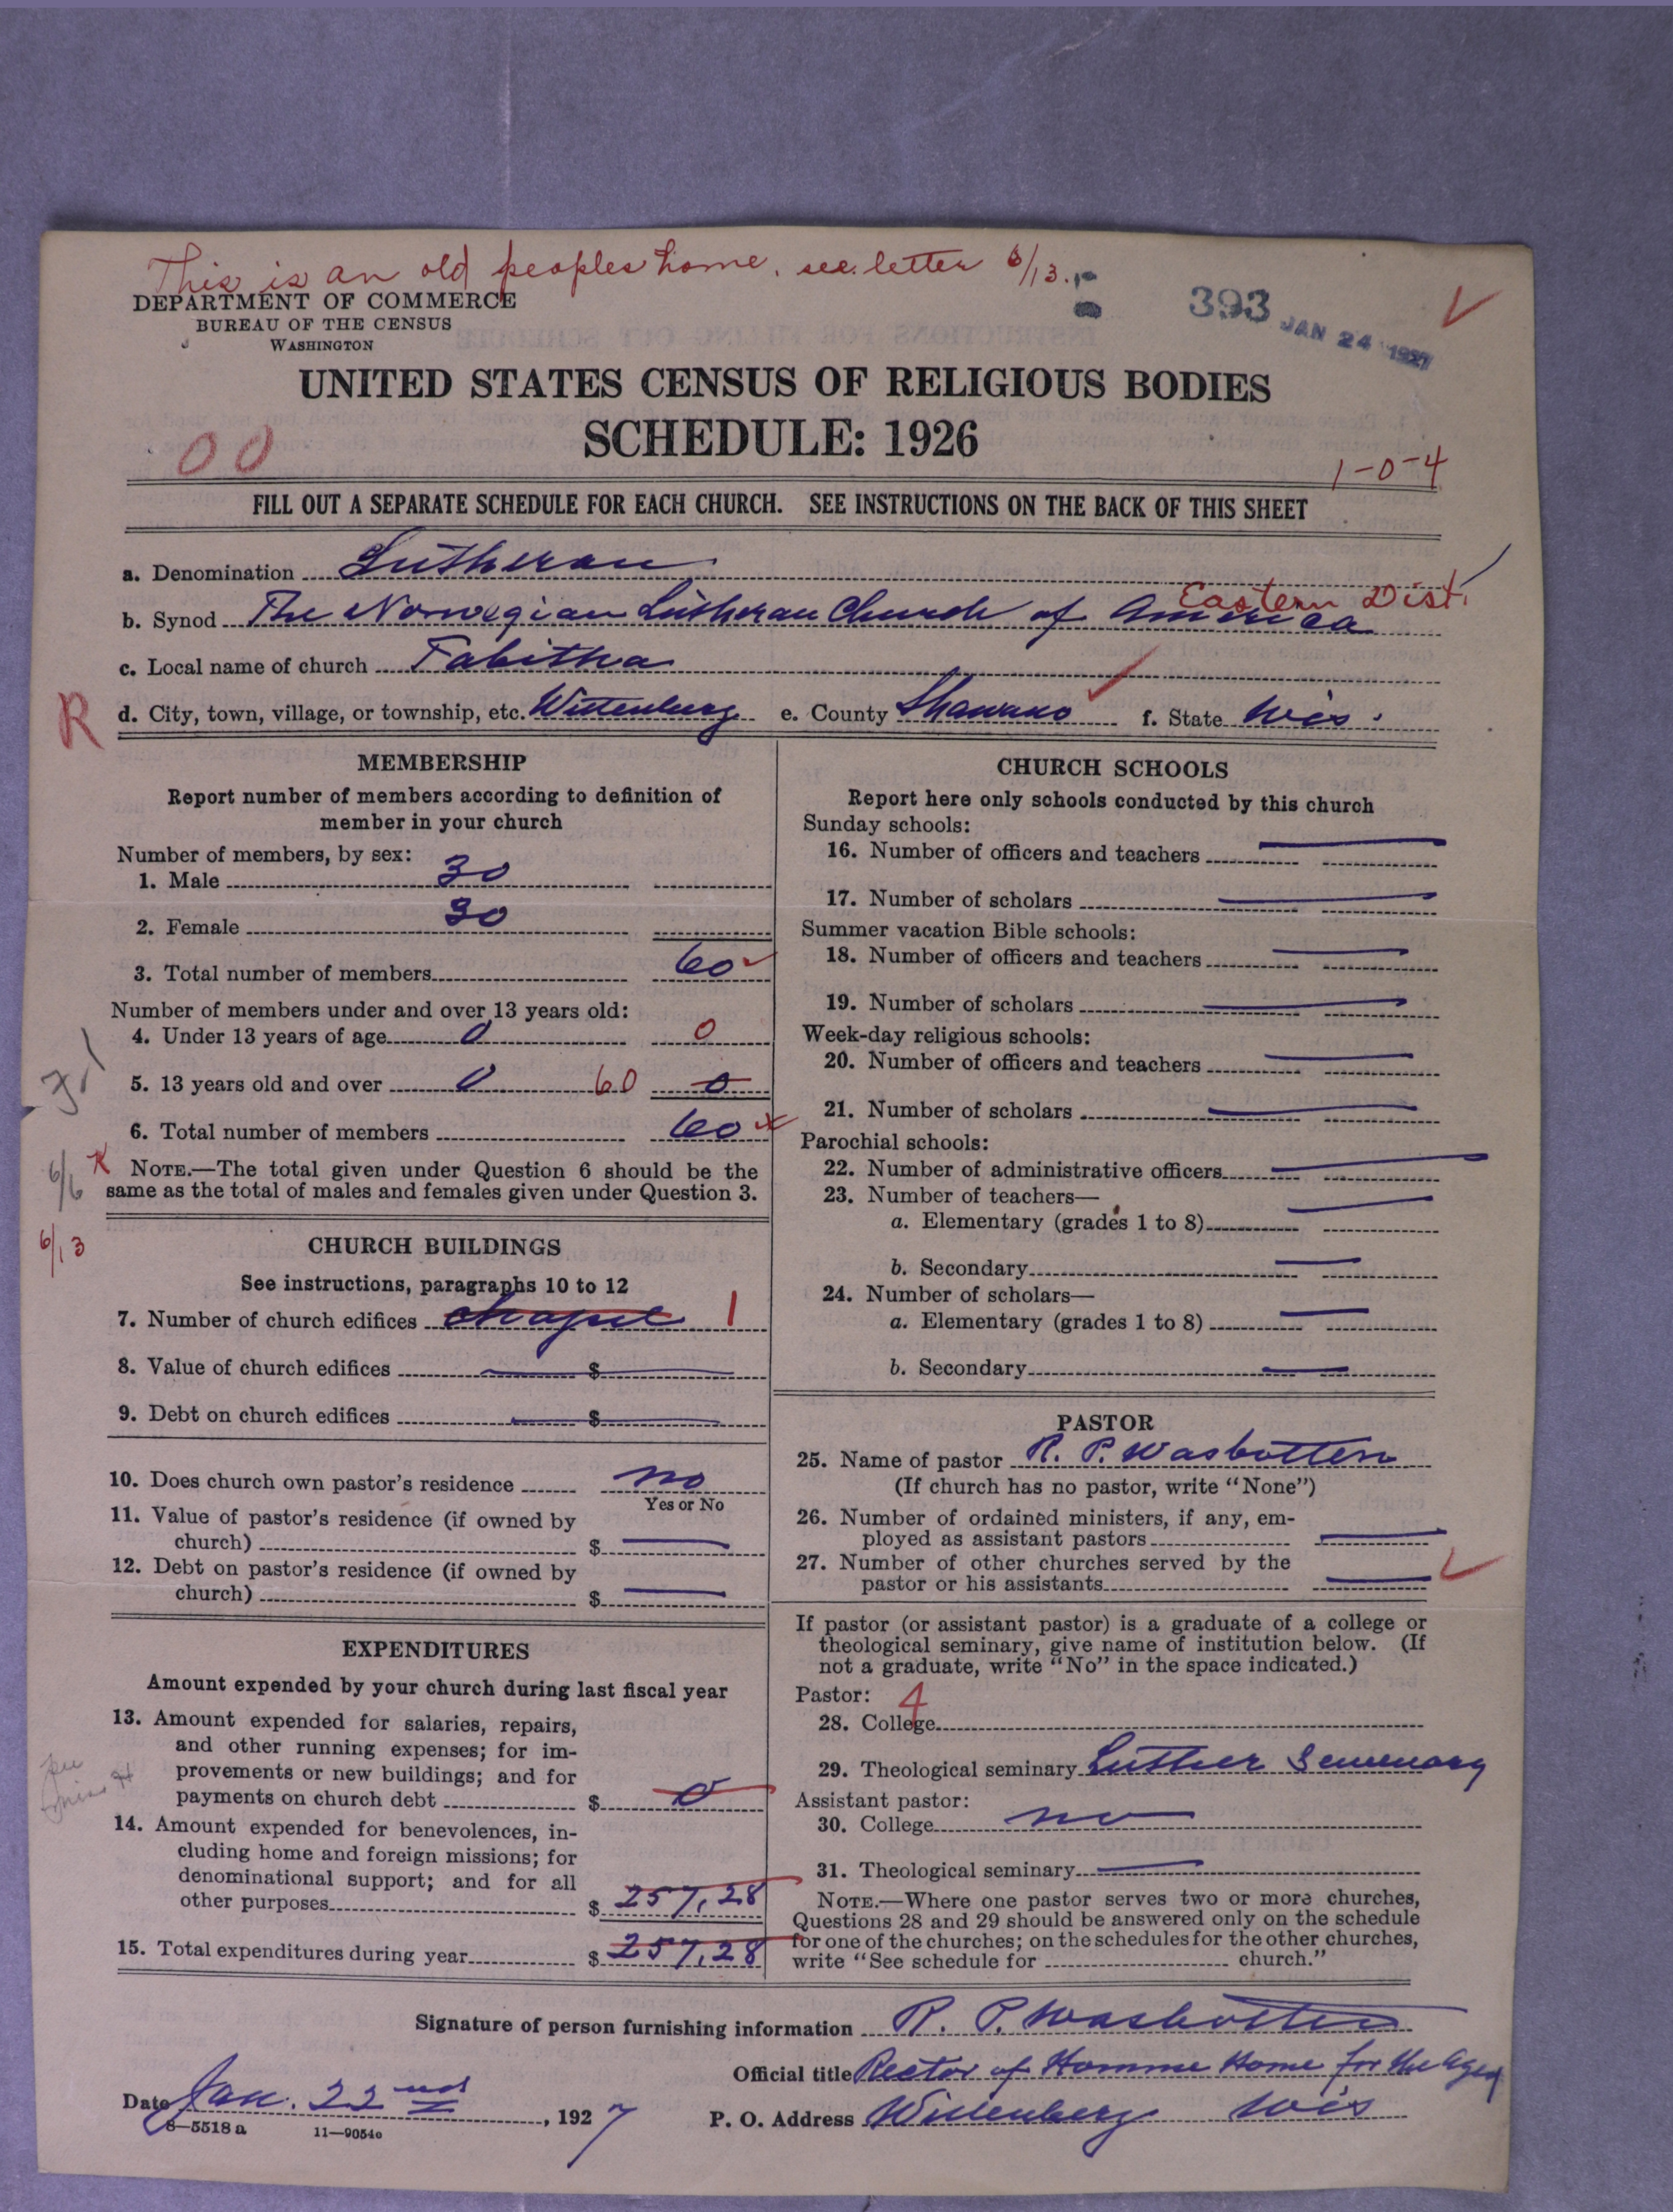 This is an old peoples home. see letter 6/13.
DEPARTMENT OF COMMERCE
BUREAU OF THE CENSUS
WASHINGTON
393
JAN 24 1927
UNITED STATES CENSUS OF RELIGIOUS BODIES
SCHEDULE: 1926
00
1-0-4
FILL OUT A SEPARATE SCHEDULE FOR EACH CHURCH. SEE INSTRUCTIONS ON THE BACK OF THIS SHEET
a. Denomination Lutheran
Eastern Dist.
b. Synod The Norwegian Lutheran Church of America
c. Local name of church Tabitha
R
d. City, town, village, or township, etc. Wittenberg e. County Shawano f. State Wis.
MEMBERSHIP
Report number of members according to definition of
member in your church
Number of members, by sex:
1. Male 30
2. Female 30
3. Total number of members 60
Number of members under and over 13 years old:
4. Under 13 years of age 0 0
5. 13 years old and over 0 60 0
6. Total number of members 60 x
6/6 x
NOTE.—The total given under Question 6 should be the
same as the total of males and females given under Question 3.
6/13
CHURCH BUILDINGS
See instructions, paragraphs 10 to 12
7. Number of church edifices chapel 1
8. Value of church edifices $
9. Debt on church edifices $
10. Does church own pastor's residence no
Yes or No
11. Value of pastor's residence (if owned by
church) $
12. Debt on pastor's residence (if owned by
church) $
EXPENDITURES
Amount expended by your church during last fiscal year
13. Amount expended for salaries, repairs,
and other running expenses; for im-
provements or new buildings; and for
payments on church debt $ 0
14. Amount expended for benevolences, in-
cluding home and foreign missions; for
denominational support; and for all
other purposes $ 257,28
15. Total expenditures during year $ 257,28
CHURCH SCHOOLS
Report here only schools conducted by this church
Sunday schools:
16. Number of officers and teachers
17. Number of scholars
Summer vacation Bible schools:
18. Number of officers and teachers
19. Number of scholars
Week-day religious schools:
20. Number of officers and teachers
21. Number of scholars
Parochial schools:
22. Number of administrative officers
23. Number of teachers—
a. Elementary (grades 1 to 8)
b. Secondary
24. Number of scholars—
a. Elementary (grades 1 to 8)
b. Secondary
PASTOR
25. Name of pastor R. P. Wasbotten
(If church has no pastor, write "None")
26. Number of ordained ministers, if any, em-
ployed as assistant pastors
27. Number of other churches served by the
pastor or his assistants
If pastor (or assistant pastor) is a graduate of a college or
theological seminary, give name of institution below. (If
not a graduate, write "No" in the space indicated.)
Pastor: 4
28. College
29. Theological seminary Luther Seminary
Assistant pastor:
30. College no
31. Theological seminary
NOTE.—Where one pastor serves two or more churches,
Questions 28 and 29 should be answered only on the schedule
for one of the churches; on the schedules for the other churches,
write "See schedule for church."
Signature of person furnishing information R. P. Wasbotten
Official title Rector of Homme Home for the Aged
Date Jan. 22nd, 1927
P. O. Address Wittenberg Wis
8—5518 a 11—9054e